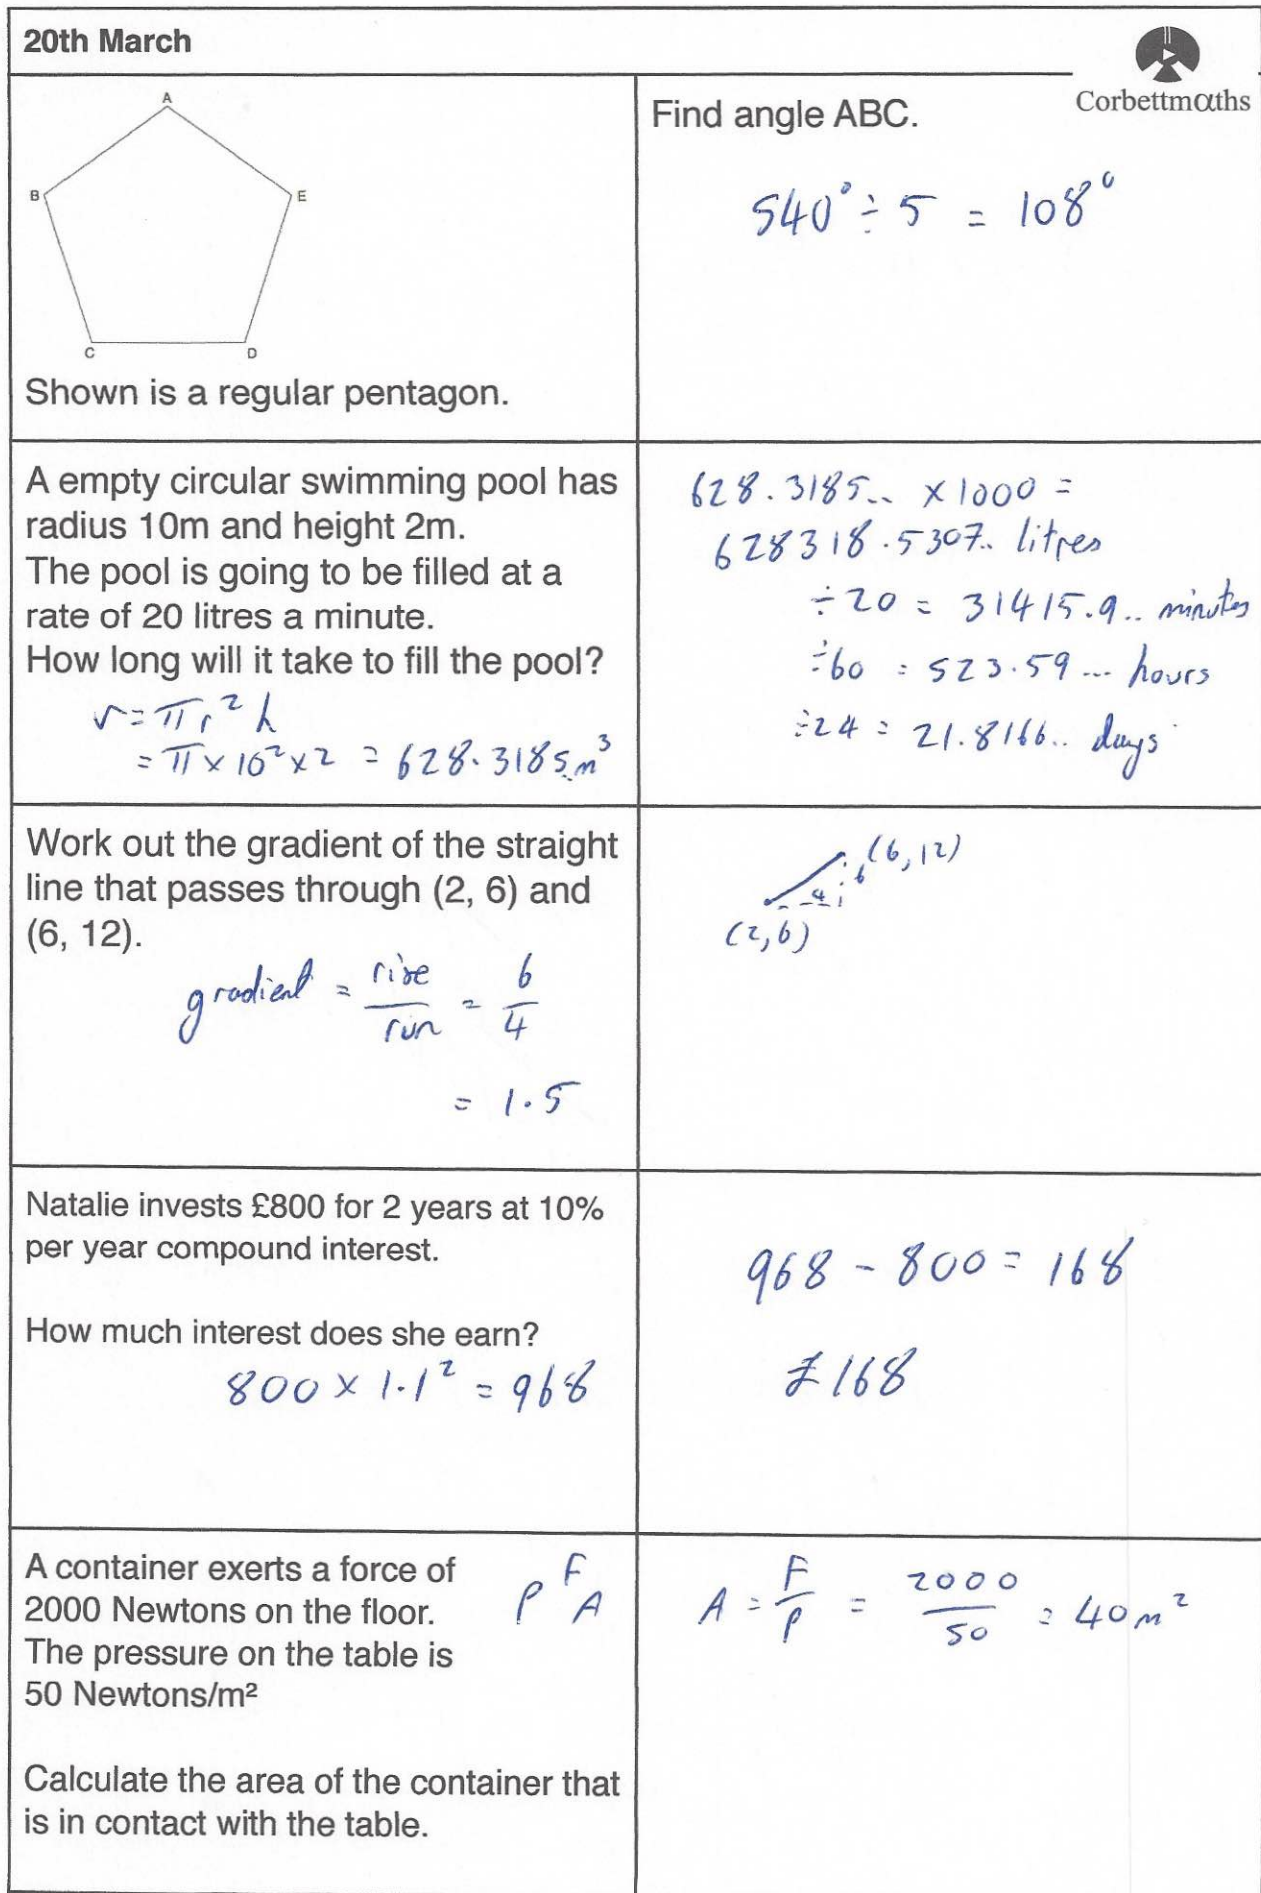 20th March
Corbettmαths
A
B
E
C
D
Shown is a regular pentagon.
Find angle ABC.
540° ÷ 5 = 108°
A empty circular swimming pool has
radius 10m and height 2m.
The pool is going to be filled at a
rate of 20 litres a minute.
How long will it take to fill the pool?
v = πr²h
= π × 10² × 2 = 628.3185..m³
628.3185.. × 1000 =
628318.5307.. litres
÷ 20 = 31415.9.. minutes
÷60 = 523.59... hours
÷24 = 21.8166.. days
Work out the gradient of the straight
line that passes through (2, 6) and
(6, 12).
gradient = rise/run = 6/4
= 1.5
(6,12)
6
4
(2,6)
Natalie invests £800 for 2 years at 10%
per year compound interest.
How much interest does she earn?
800 × 1.1² = 968
968 - 800 = 168
£168
A container exerts a force of
2000 Newtons on the floor.
The pressure on the table is
50 Newtons/m²
Calculate the area of the container that
is in contact with the table.
F
P A
A = F/P = 2000/50 = 40m²